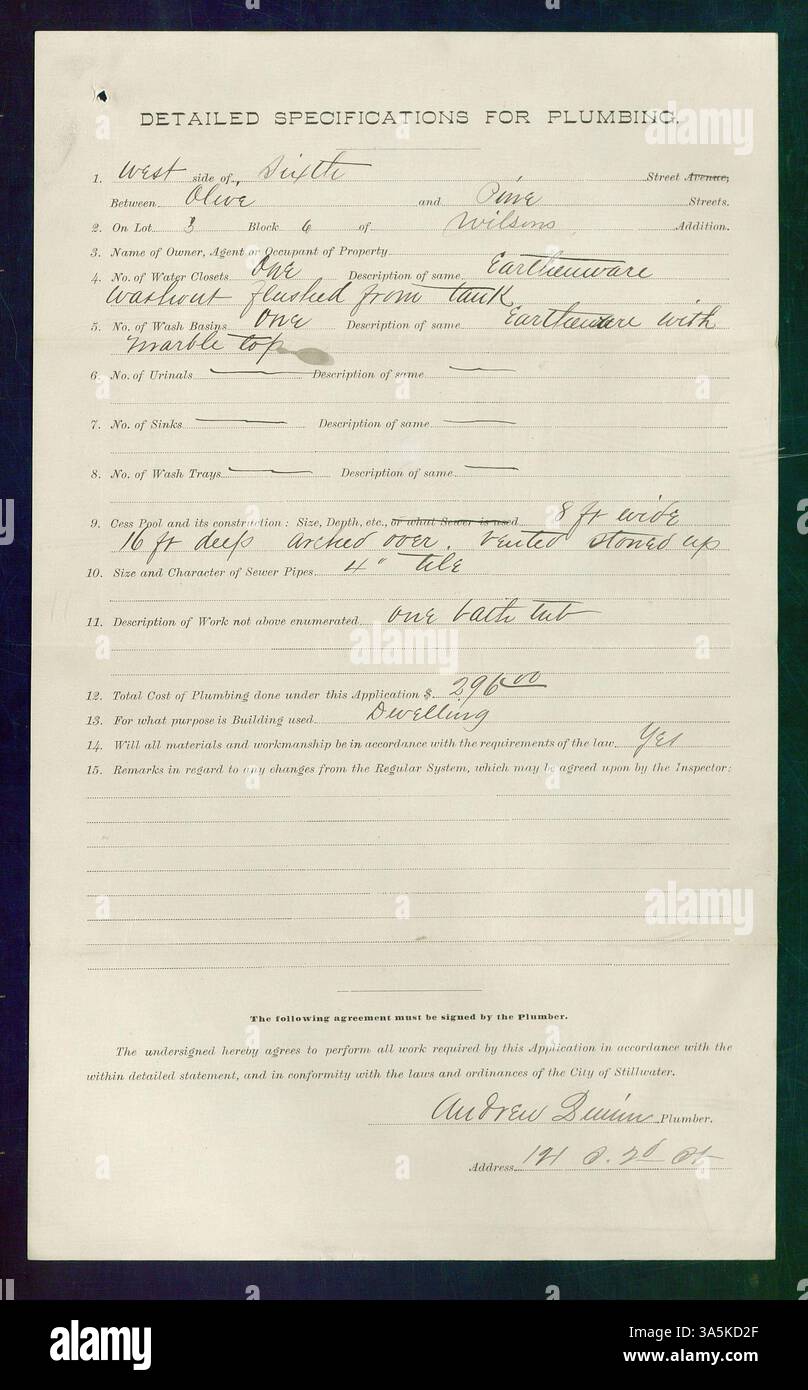 DETAILED SPECIFICATIONS FOR PLUMBING.
1. West side of Sixth Street Avenue,
Between Olive and Pine Streets.
2. On Lot 3 Block 6 of Wilsons Addition.
3. Name of Owner, Agent or Occupant of Property
4. No. of Water Closets One Description of same Earthenware
washout flushed from tank
5. No. of Wash Basins One Description of same Earthenware with
marble top
6. No. of Urinals — Description of same —
7. No. of Sinks — Description of same —
8. No. of Wash Trays — Description of same —
9. Cess Pool and its construction: Size, Depth, etc., or what Sewer is used 8 ft wide
16 ft deep arched over. vented stoned up
10. Size and Character of Sewer Pipes 4" tile
11. Description of Work not above enumerated one bath tub
12. Total Cost of Plumbing done under this Application $ 296.00
13. For what purpose is Building used Dwelling
14. Will all materials and workmanship be in accordance with the requirements of the law Yes
15. Remarks in regard to any changes from the Regular System, which may be agreed upon by the Inspector:
The following agreement must be signed by the Plumber.
The undersigned hereby agrees to perform all work required by this Application in accordance with the
within detailed statement, and in conformity with the laws and ordinances of the City of Stillwater.
Andrew Plumber.
Address 121 S. 2d St
alamy
alamy
Image ID: 3A5KD2F
www.alamy.com